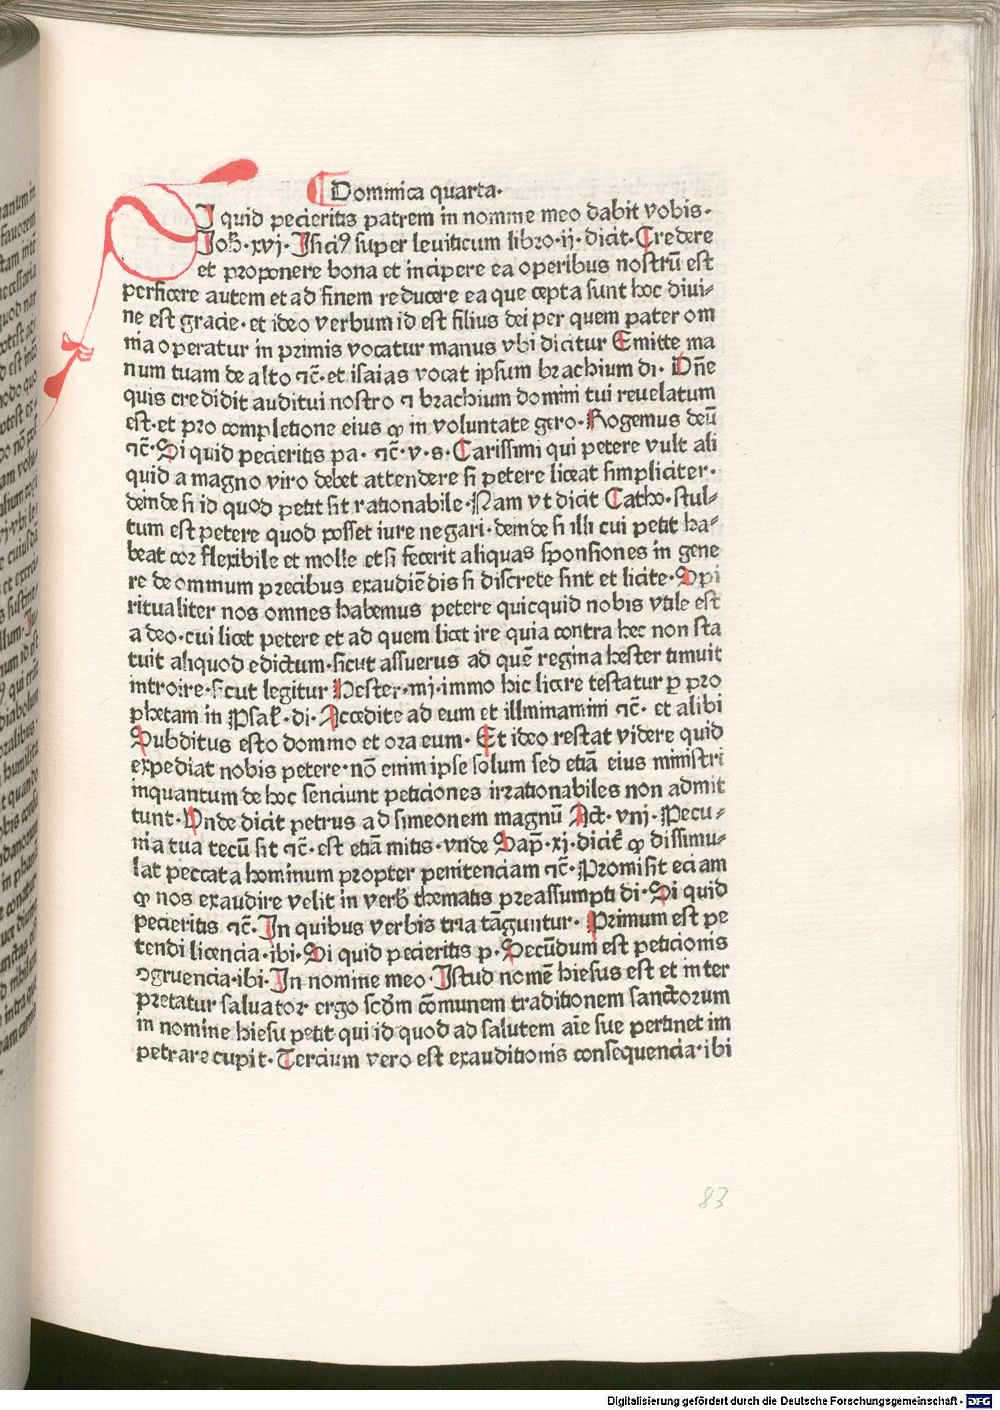 Dominica quarta·
SI quid pecieritis patrem in nomine meo dabit vobis·
Joh̄·xvj·Isiciꝰ super leviticum libro·ij·dicit·Credere
et proponere bona et incipere ea operibus nostrū est
perficere autem et ad finem reducere ea que cepta sunt hoc divi⸗
ne est gracie·et ideo verbum id est filius dei per quem pater om
nia operatur in primis vocatur manus vbi dicitur Emitte ma
num tuam de alto ⁊c̄·et isaias vocat ipsum brachium di·Dn̄e
quis credidit auditui nostro ⁊ brachium domini tui reuelatum
est·et pro completione eius ꝙ in voluntate gero·Rogemus deū
⁊c̄·Si quid pecieritis pa·⁊c̄·v·s·Carissimi qui petere vult ali
quid a magno viro debet attendere si petere liceat simpliciter·
deinde si id quod petit sit rationabile·Nam vt dicit Catho·stul⸗
tum est petere quod posset iure negari·deinde si illi cui petit ha⸗
beat cor flexibile et molle etsi fecerit aliquas sponsiones in gene
re de omnium precibus exaudiēdis si discrete sint et licite·Spi
ritualiter nos omnes habemus petere quicquid nobis vtile est
a deo·cui licet petere et ad quem licet ire quia contra hec non sta
tuit aliquod edictum·sicut assuerus ad quē regina hester timuit
introire·sicut legitur Hester·iiij·immo hic licere testatur ꝑ pro
phetam in Psal̄·di·Accedite ad eum et illuminamini ⁊c̄·et alibi
Subditus esto domino et ora eum·Et ideo restat videre quid
expediat nobis petere·nō enim ipse solum sed etiā eius ministri
inquantum de hoc senciunt peticiones irrationabiles non admit
tunt·Vnde dicit petrus ad simeonem magnū Act·viij·Pecu⸗
nia tua tecū sit ⁊c̄·est etiā mitis·vnde Sap̄·xj·dicit̄ ꝙ dissimu⸗
lat peccata hominum propter penitenciam ⁊c̄·Promisit eciam
ꝙ nos exaudire velit in verb̄ thematis preassumpti di·Si quid
pecieritis ⁊c̄·In quibus verbis tria tāguntur·Primum est pe
tendi licencia·ibi·Si quid pecieritis p·Secūdum est peticionis
ꝯgruencia·ibi·In nomine meo·Istud nomē hiesus est et inter
pretatur saluator ergo scd̄m cōmunem traditionem sanctorum
in nomine hiesu petit qui id quod ad salutem aīe sue pertinet im
petrare cupit·Tercium vero est exauditionis consequencia·ibi
83
Digitalisierung gefördert durch die Deutsche Forschungsgemeinschaft - DFG